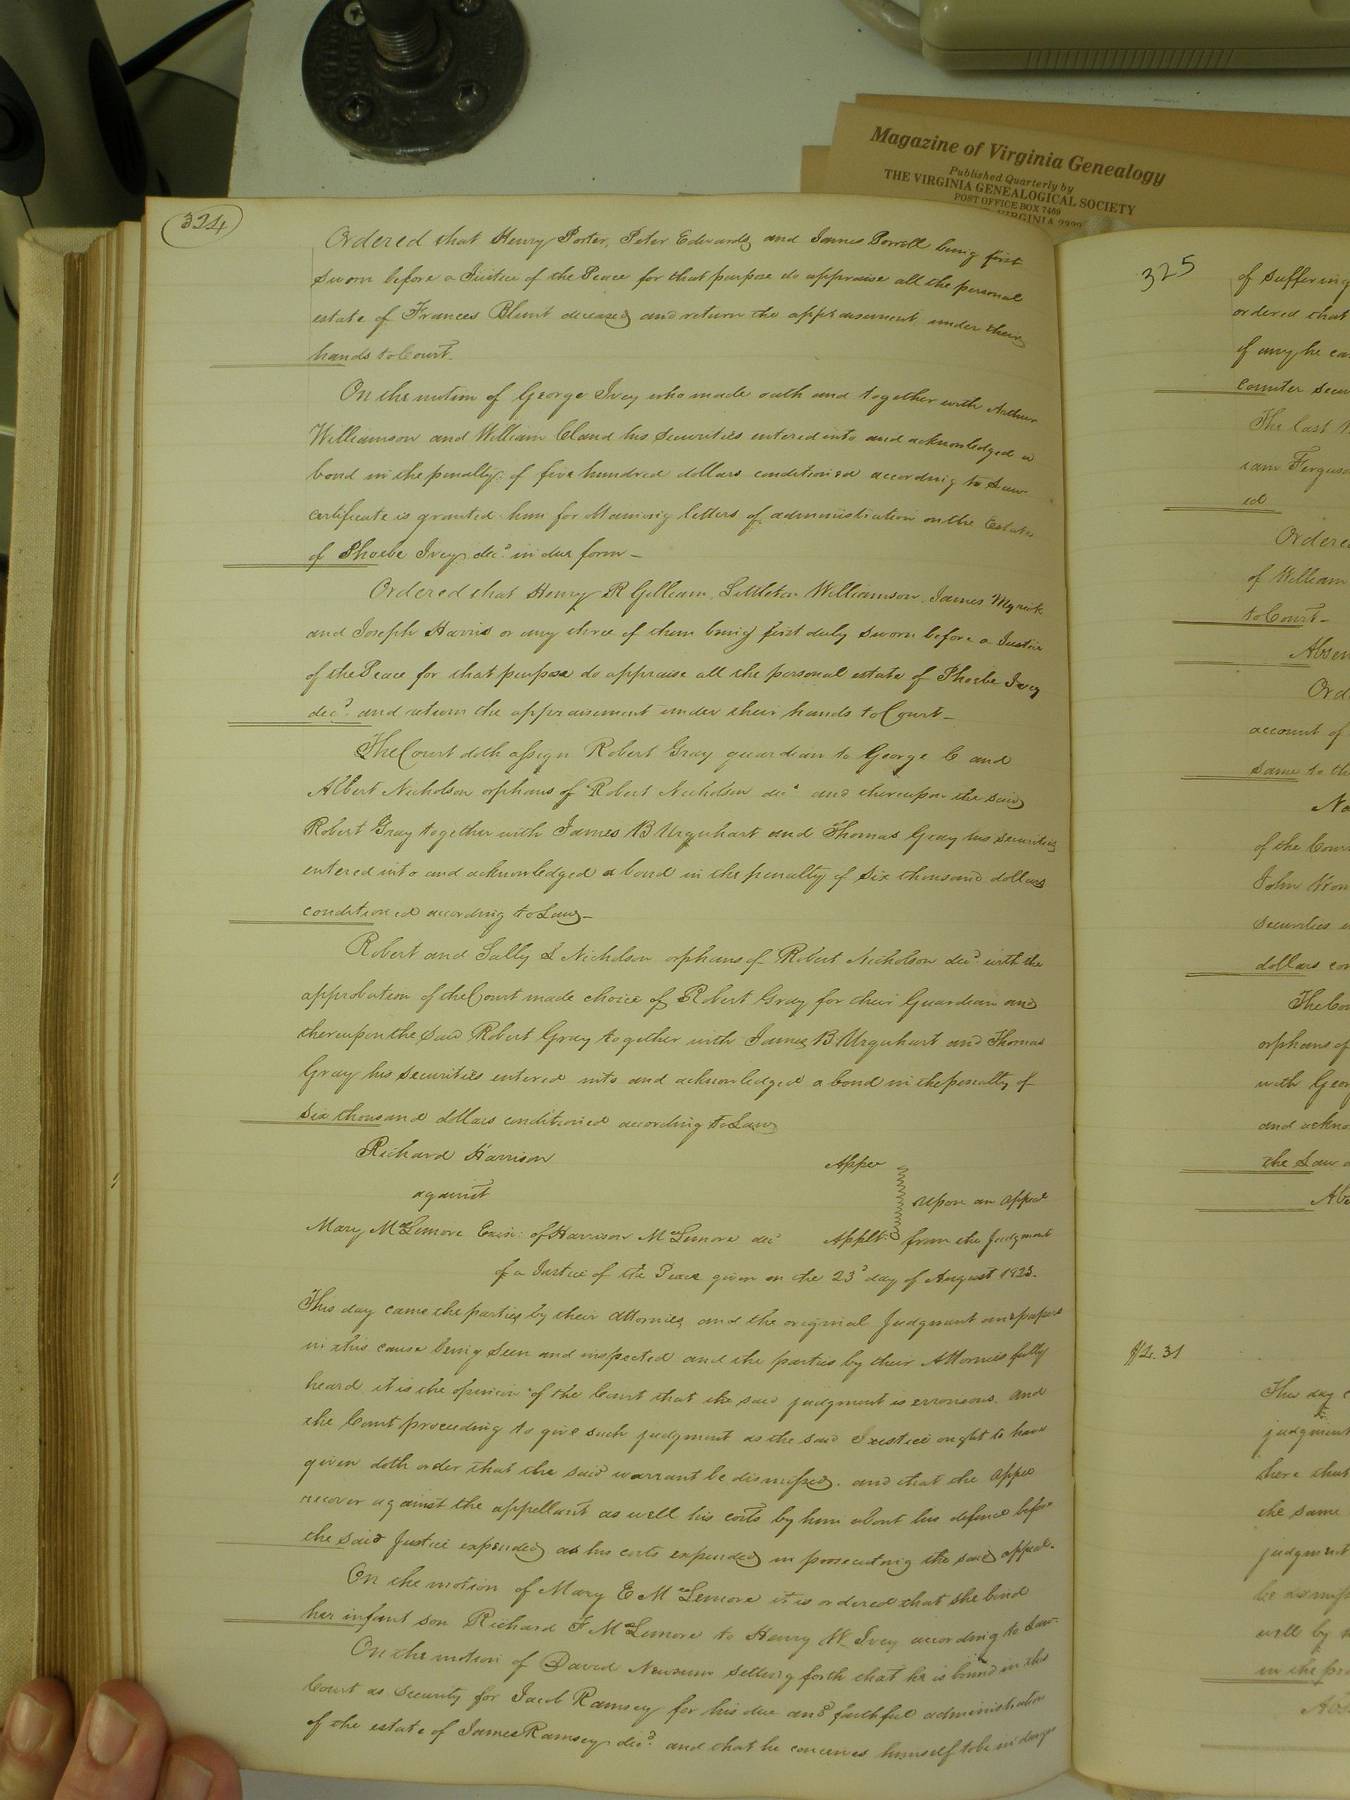 Magazine of Virginia Genealogy
Published Quarterly by
THE VIRGINIA GENEALOGICAL SOCIETY
POST OFFICE BOX 7469
VIRGINIA
324
Ordered that Henry Porter, Peter Edwards and James Porrell being first
sworn before a Justice of the Peace for that purpose do appraise all the personal
estate of Frances Blunt deceased and return the appraisement under their
hands to Court.
On the motion of George Ivey who made oath and together with Arthur
Williamson and William Bland his securities entered into and acknowledged a
bond in the penalty of five hundred dollars conditioned according to Law
certificate is granted him for obtaining letters of administration on the Estate
of Phoebe Ivey decd in due form
Ordered that Henry R Gilliam, Littleton Williamson, James Myrick
and Joseph Harris or any three of them being first duly sworn before a Justice
of the Peace for that purpose do appraise all the personal estate of Phoebe Ivey
decd. and return the appraisement under their hands to Court
The Court doth assign Robert Gray guardian to George C and
Albert Nicholson orphans of Robert Nicholson decd and thereupon the said
Robert Gray together with James B Urquhart and Thomas Gray his securities
entered into and acknowledged a bond in the penalty of six thousand dollars
conditioned according to Law
Robert and Sally L Nicholson orphans of Robert Nicholson decd with the
approbation of the Court made choice of Robert Gray for their Guardian and
thereupon the said Robert Gray together with James B Urquhart and Thomas
Gray his securities entered into and acknowledged a bond in the penalty of
six thousand dollars conditioned according to Law
Richard Harrison Appee
against upon an appeal
Mary McLemore Exix: of Harrison McLemore decd Applt: from the Judgment
of a Justice of the Peace given on the 23d day of August 1823.
This day came the parties by their Attornies and the original Judgment and papers
in this cause being seen and inspected and the parties by their Attornies fully
heard it is the opinion of the Court that the said judgment is erroneous. And
the Court proceeding to give such judgment as the said Justice ought to have
given doth order that the said warrant be dismissed. and that the appee
recover against the appellant as well his costs by him about his defence before
the said Justice expended as his costs expended in prosecuting the said appeal.
On the motion of Mary E McLemore it is ordered that she bind
her infant son Richard F McLemore to Henry W Ivey according to Law
On the motion of David Newsum setting forth that he is bound in this
Court as security for Jacob Ramsey for his due and faithful administration
of the estate of James Ramsey decd. and that he conceives himself to be in danger
325
of suffering
ordered that
if any he ca
counter secu
The last W
iam Fergus
ed
Ordered
of William
to Court
Absen
Ord
account of
same to th
of the Cour
John
securities
dollars con
The Co
orphans of
with Geo
and ackno
the Law
Ab
$2.31
This day c
judgment
there that
the same
judgment
be dismiss
well by
in the pr